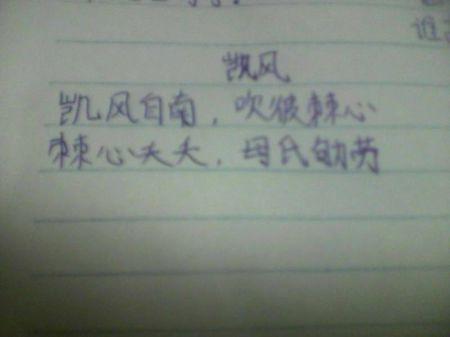 凯风
凯风自南，吹彼棘心
棘心夭夭，母氏劬劳